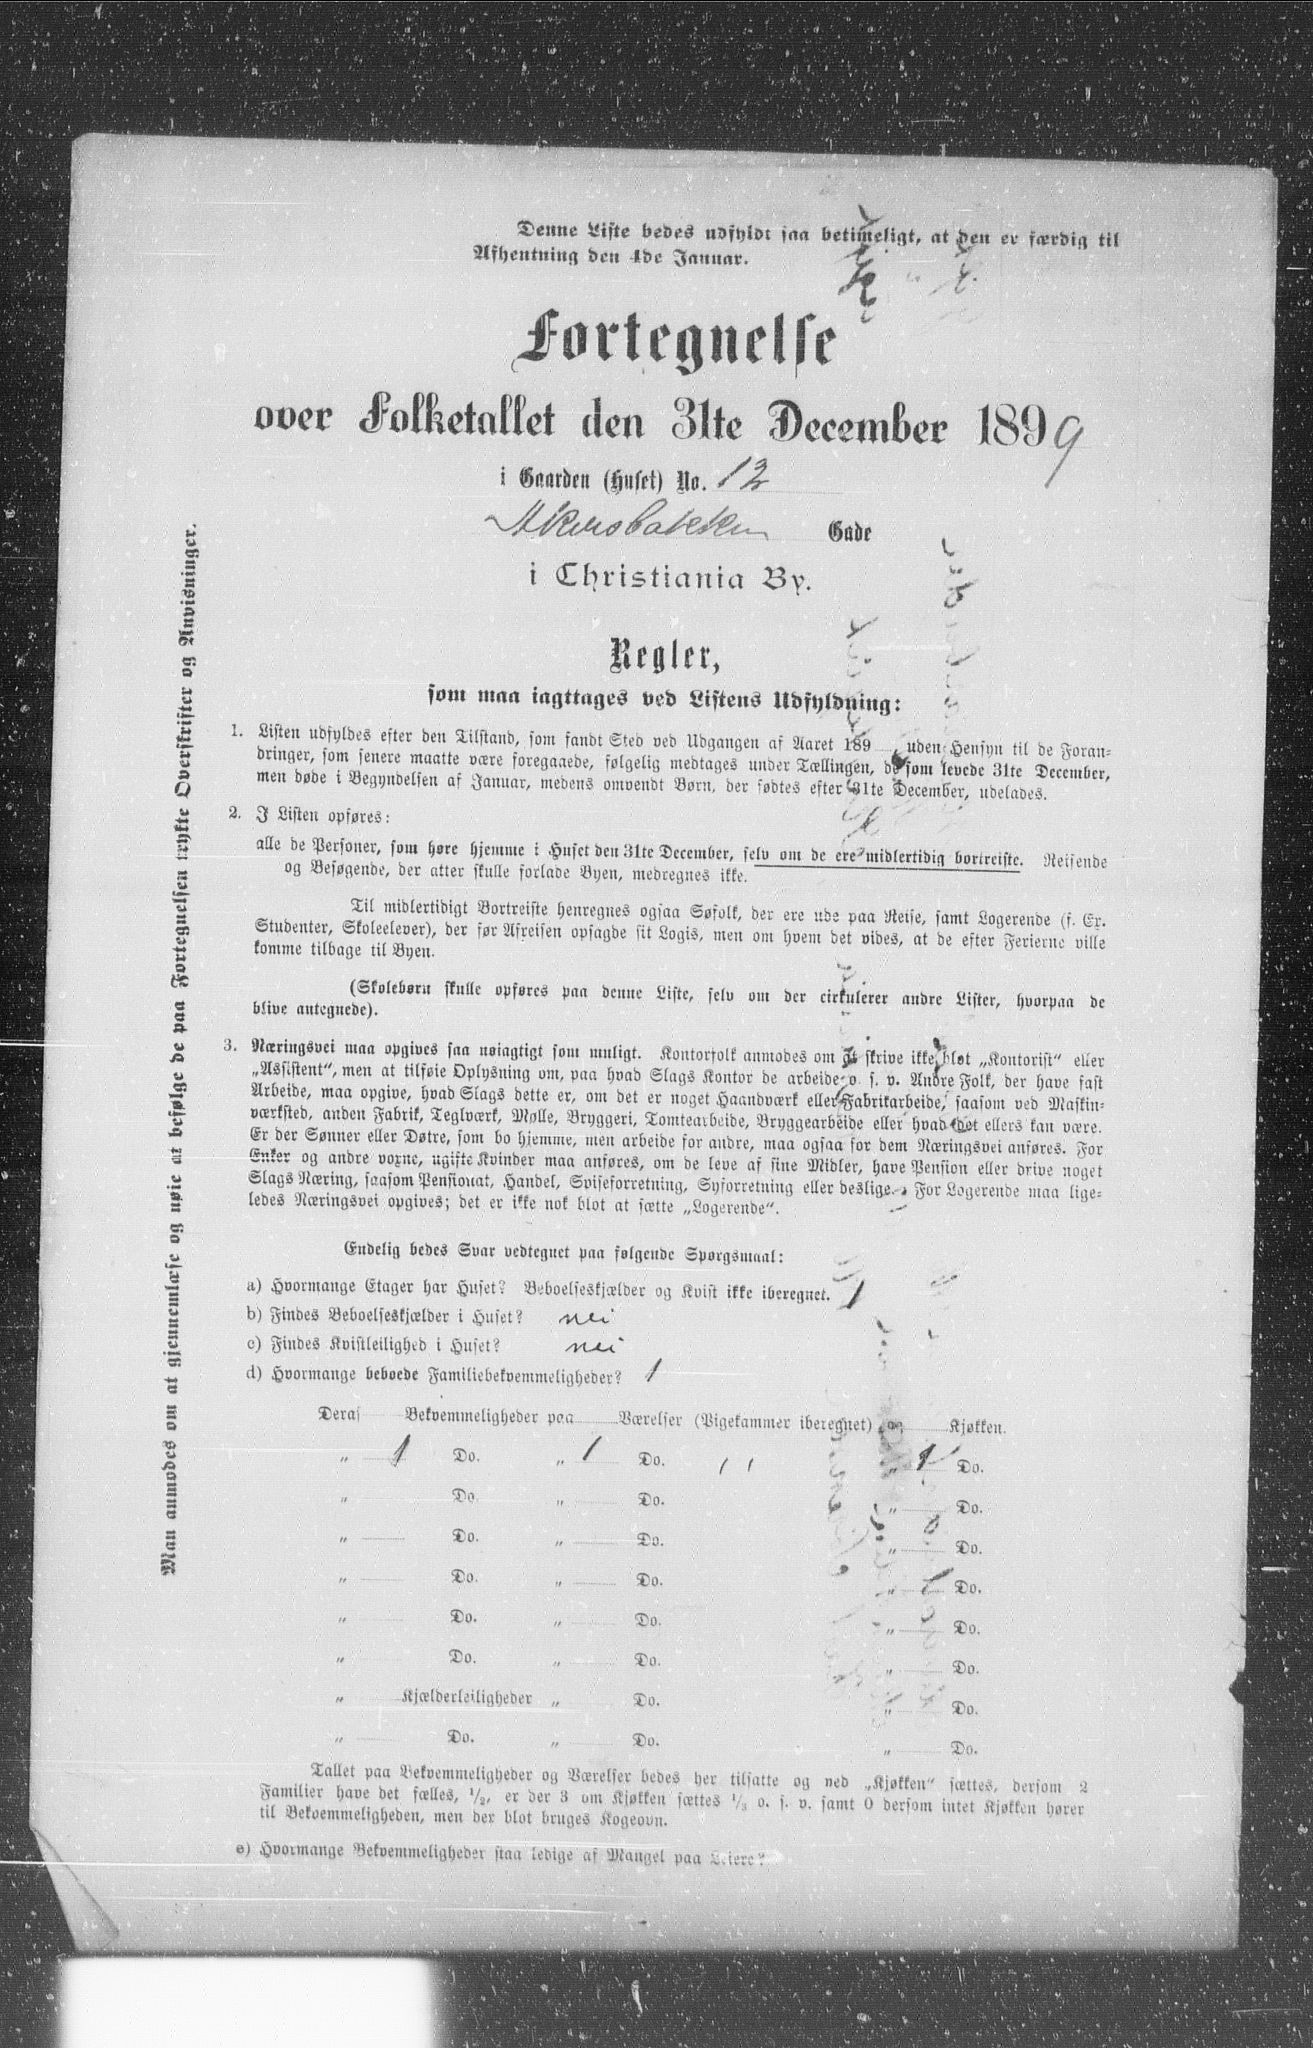 Denne Liste bedes udfyldt saa betimeligt, at den er færdig til
Afhentning den 4de Januar.
Fortegnelse
over Folketallet den 31te December 1899
i Gaarden (Huset) No. 12
Akersbakken Gade
i Christiania By.
Regler,
som maa iagttages ved Listens Udfyldning:
1. Listen udfyldes efter den Tilstand, som fandt Sted ved Udgangen af Aaret 189 , uden Hensyn til de Foran-
dringer, som senere maatte være foregaaede, følgelig medtages under Tællingen, de som levede 31te December,
men døde i Begyndelsen af Januar, medens omvendt Børn, der fødtes efter 31te December, udelades.
2. I Listen opføres:
alle de Personer, som høre hjemme i Huset den 31te December, selv om de ere midlertidig bortreiste. Reisende
og Besøgende, der atter skulle forlade Byen, medregnes ikke.
Til midlertidigt Bortreiste henregnes ogsaa Søfolk, der ere ude paa Reise, samt Logerende (f. Ex.
Studenter, Skoleelever), der før Afreisen opsagde sit Logis, men om hvem det vides, at de efter Ferierne ville
komme tilbage til Byen.
(Skolebørn skulle opføres paa denne Liste, selv om der cirkulerer andre Lister, hvorpaa de
blive antegnede).
3. Næringsvei maa opgives saa nøiagtigt som muligt. Kontorfolk anmodes om at skrive ikke blot „Kontorist" eller
„Assistent", men at tilføie Oplysning om, paa hvad Slags Kontor de arbeide o. s. v. Andre Folk, der have fast
Arbeide, maa opgive, hvad Slags dette er, om det er noget Haandværk eller Fabrikarbeide, saasom ved Maskin-
værksted, anden Fabrik, Teglværk, Mølle, Bryggeri, Tomtearbeide, Bryggearbeide eller hvad det ellers kan være.
Er der Sønner eller Døtre, som bo hjemme, men arbeide for andre, maa ogsaa for dem Næringsvei anføres. For
Enker og andre voxne, ugifte Kvinder maa anføres, om de leve af sine Midler, have Pension eller drive noget
Slags Næring, saasom Pensionat, Handel, Spiseforretning, Syforretning eller deslige. For Logerende maa lige-
ledes Næringsvei opgives; det er ikke nok blot at sætte „Logerende".
Endelig bedes Svar vedtegnet paa følgende Spørgsmaal:
a) Hvormange Etager har Huset? Beboelseskjælder og Kvist ikke iberegnet. 1
b) Findes Beboelseskjælder i Huset? nei
c) Findes Kvistleilighed i Huset? nei
d) Hvormange beboede Familiebekvemmeligheder? 1
Deraf Bekvemmeligheder paa Værelser (Pigekammer iberegnet) og Kjøkken.
„ 1 Do. „ 1 Do. „ 1 Do.
„ Do. „ Do. „ Do.
„ Do. „ Do. „ Do.
„ Do. „ Do. „ Do.
„ Do. „ Do. „ Do.
„ Do. „ Do. „ Do.
„ Kjælderleiligheder „ Do. „ Do.
„ Do. „ Do. „ Do.
Tallet paa Bekvemmeligheder og Værelser bedes her tilsatte og ved „Kjøkken" sættes, dersom 2
Familier have det fælles, 1/2, er der 3 om Kjøkken sættes 1/3 o. s. v. samt 0 dersom intet Kjøkken hører
til Bekvemmeligheden, men der blot bruges Kogeovn.
e) Hvormange Bekvemmeligheder staa ledige af Mangel paa Leiere?
Man anmodes om at gjennemlæse og nøie at befølge de paa Fortegnelsen trykte Overskrifter og Anvisninger.